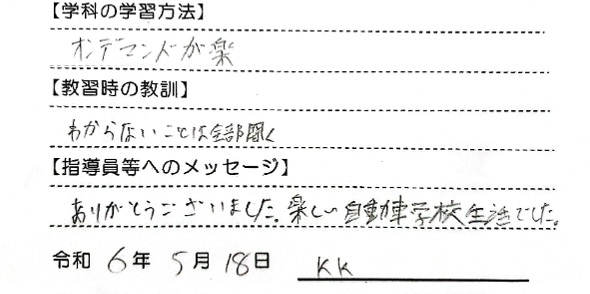 【学科の学習方法】
オンデマンドが楽
【教習時の教訓】
わからないことは全部聞く
【指導員等へのメッセージ】
ありがとうございました。楽しい自動車学校生活でした。
令和 6年 5月 18日 KK